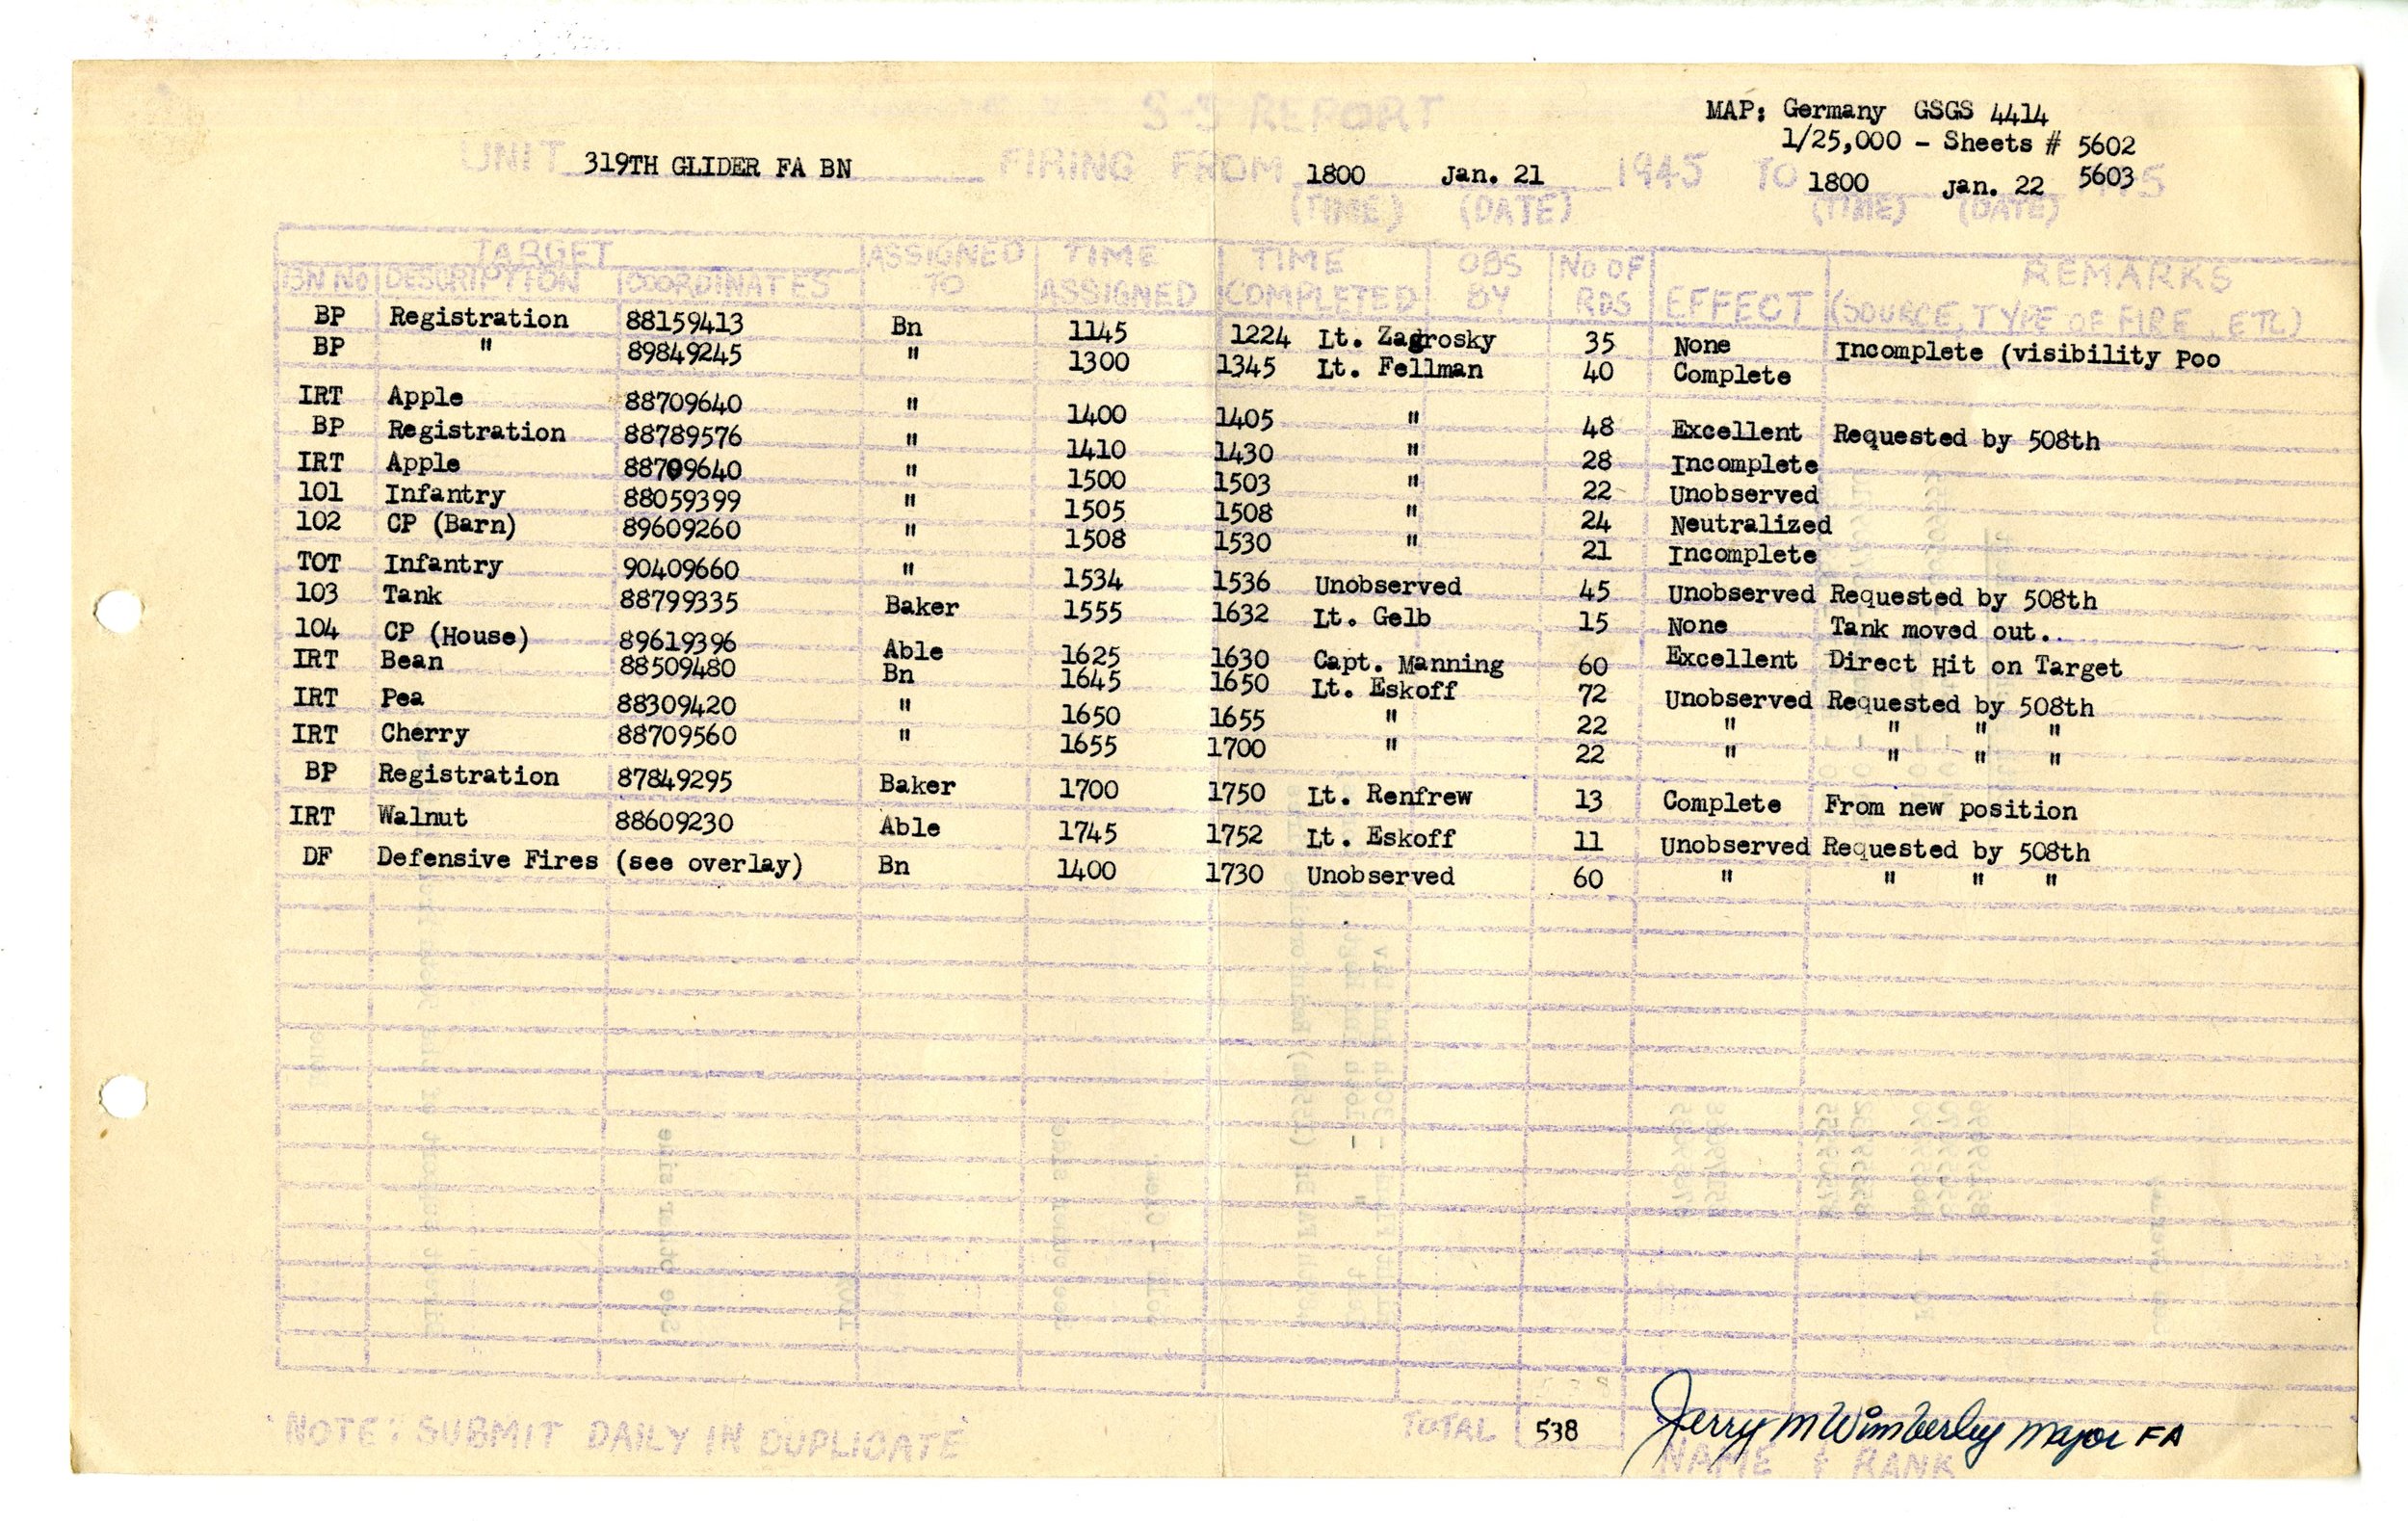 S-3 REPORT
MAP: Germany GSGS 4414
1/25,000 - Sheets # 5602
5603
UNIT 319TH GLIDER FA BN FIRING FROM 1800 Jan. 21 1945 TO 1800 Jan. 22
(TIME) (DATE) (TIME) (DATE)
TARGET ASSIGNED TO TIME ASSIGNED TIME COMPLETED OBS BY NO OF RDS EFFECT REMARKS
BN NO DESCRIPTION COORDINATES (SOURCE, TYPE OF FIRE, ETC)
BP Registration 88159413 Bn 1145 1224 Lt. Zagrosky 35 None Incomplete (visibility Poo
BP " 89849245 " 1300 1345 Lt. Fellman 40 Complete
IRT Apple 88709640 " 1400 1405 " 48 Excellent Requested by 508th
BP Registration 88789576 " 1410 1430 " 28 Incomplete
IRT Apple 88709640 " 1500 1503 " 22 Unobserved
101 Infantry 88059399 " 1505 1508 " 24 Neutralized
102 CP (Barn) 89609260 " 1508 1530 " 21 Incomplete
TOT Infantry 90409660 " 1534 1536 Unobserved 45 Unobserved Requested by 508th
103 Tank 88799335 Baker 1555 1632 Lt. Gelb 15 None Tank moved out.
104 CP (House) 89619396 Able 1625 1630 Capt. Manning 60 Excellent Direct Hit on Target
IRT Bean 88509480 Bn 1645 1650 Lt. Eskoff 72 Unobserved Requested by 508th
IRT Pea 88309420 " 1650 1655 " 22 " " " "
IRT Cherry 88709560 " 1655 1700 " 22 " " " "
BP Registration 87849295 Baker 1700 1750 Lt. Renfrew 13 Complete From new position
IRT Walnut 88609230 Able 1745 1752 Lt. Eskoff 11 Unobserved Requested by 508th
DF Defensive Fires (see overlay) Bn 1400 1730 Unobserved 60 " " " "
NOTE: SUBMIT DAILY IN DUPLICATE TOTAL 538 Jerry M Wimberley Major FA
NAME & RANK